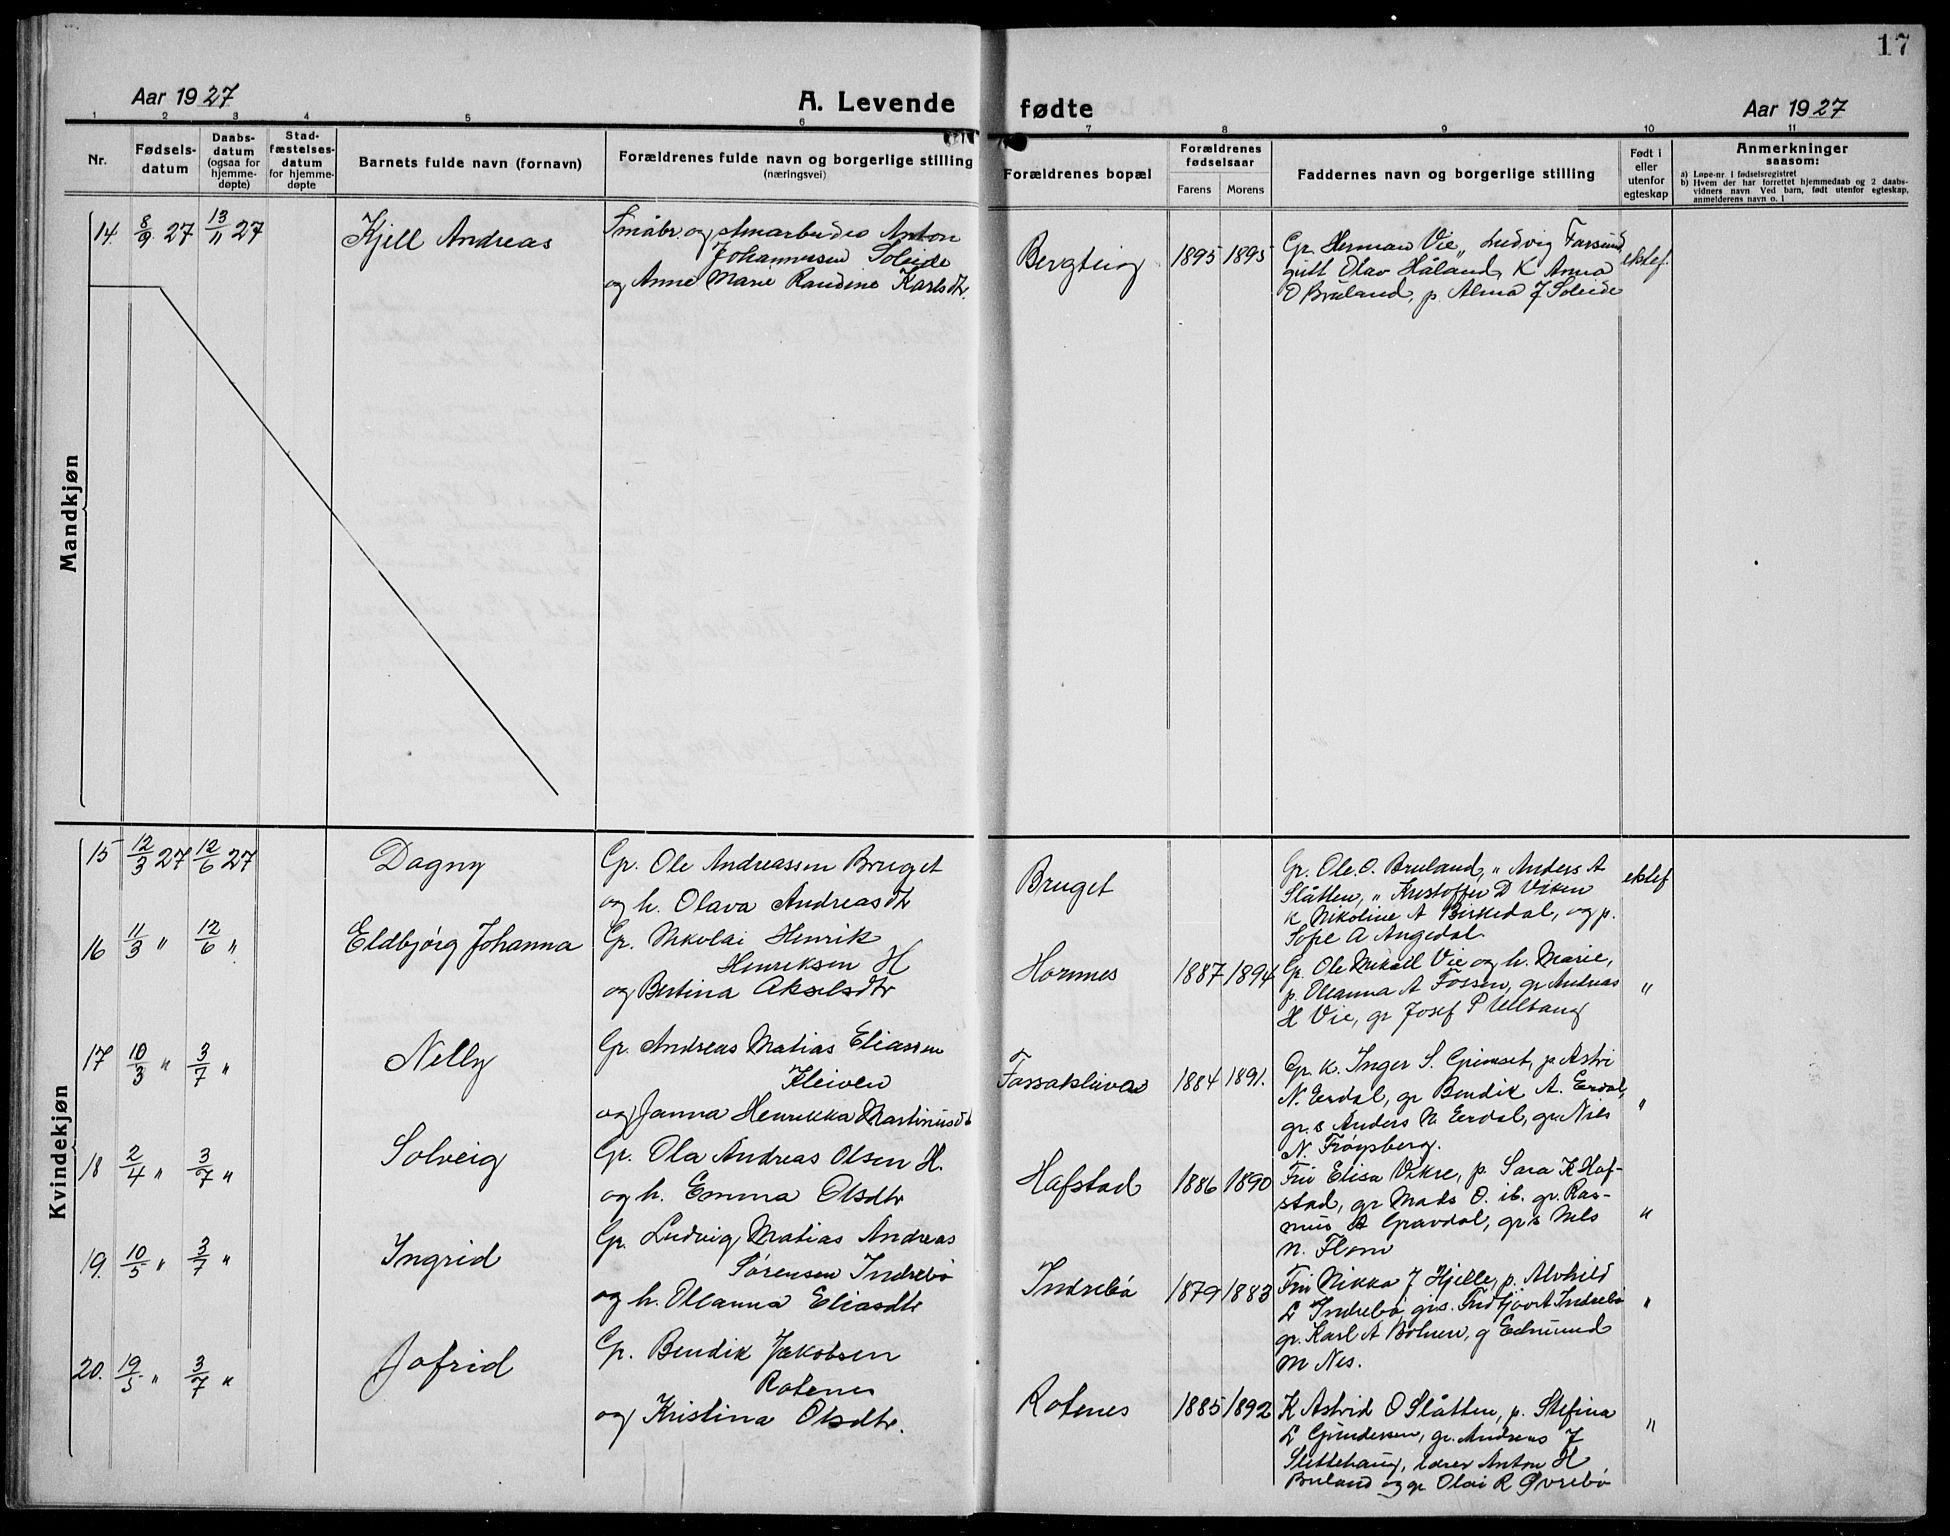 17
Aar 1927
A. Levende fødte
Aar 1927
1 2 3 4 5 6 7 8 9 10 11
Nr.
Fødsels-
datum
Daabs-
datum
(ogsaa for
hjemme-
døpte)
Stad-
fæstelses-
datum
for hjemme-
døpte
Barnets fulde navn (fornavn)
Forældrenes fulde navn og borgerlige stilling
(næringsvei)
Forældrenes bopæl
Forældrenes
fødselsaar
Farens
Morens
Faddernes navn og borgerlige stilling
Født i
eller
utenfor
egteskap
Anmerkninger
saasom:
a) Løpe-nr. i fødselsregistret
b) Hvem der har forrettet hjemmedaab og 2 daabs-
vidners navn. Ved barn, født utenfor egteskap,
anmelderens navn o. l
Mandkjøn
14. 8/9 27 13/11 27
Kjell Andreas
Småbr. og Anton
Johannesen Soleide
og Anne Marie Randine Karlsdtr.
Bergteig
1895 1895
Gr. Herman Vie, " Ludvig Farsund
gutt Olav Håland, K Anna
O Bruland, p. Alma J Soleide
ektef.
Kvindekjøn
15 12/3 27 12/6 27
Dagny
Gr. Ole Andreassen Bruget
og h. Olava Andreasdtr
Bruget
Gr. Ole O. Bruland, " Anders A
Slåtten, " Kristoffer D Viken
K, Nikoline A Birkedal, og p.
Sofie A Angedal.
ektef
16 11/3 " 12/6 "
Eldbjørg Johanna
Gr. Nikolai Henrik
Henriksen H
og Bertina Akselsdtr
Hornnes
1887 1894
Gr. Ole Mikael Vie og h. Marie,
p. Oleanna A Fossen, gr Andreas
H Vie, gr Josef P Ulltang
"
17 10/3 " 3/7 "
Nelly
Gr. Andreas Matias Eliassen
Kleiven
og Janna Henrikka Martinusdt
1884 1891.
Gr. K. Inger S. Grimset, p. Astri
N. Erdal, gr Bendik A. Erdal,
gr. s Anders N. Erdal, gr. Nils
N. Frøysberg.
"
18 2/4 " 3/7 "
Solveig
Gr. Ola Andreas Olsen H.
og h. Emma Olsdtr
Hafstad
1886 1890
Fru Elisa Vikre, p. Sara K Haf-
stad, gr Mads O. ib. gr. Ras-
mus A Gravdal, gr s Nils
N. Flom
"
19. 10/5 " 3/7 "
Ingrid
Gr. Ludvig Matias Andreas
Sørensen Indrebø
og h. Oleanna Eliasdtr
Indrebø
1879 1883
Fru Nikka J Hjelle, p. Alvhild
L Indrebø, grs. Fridtjov A Indrebø
gr. Karl A Bolsen, g Edmund
M Nes.
"
20. 19/5 " 3/7 "
Jofrid
Gr. Bendik Jakobsen
Rotenes
og Kristina Olsdtr.
Rotenes
1885 1892
K Astrid O Slåtten, p. Stefina
L Gundersen, gr. Andreas J
Slettehaug, lærer Anton H
Bruland og gr Olai R Øvrebø
"